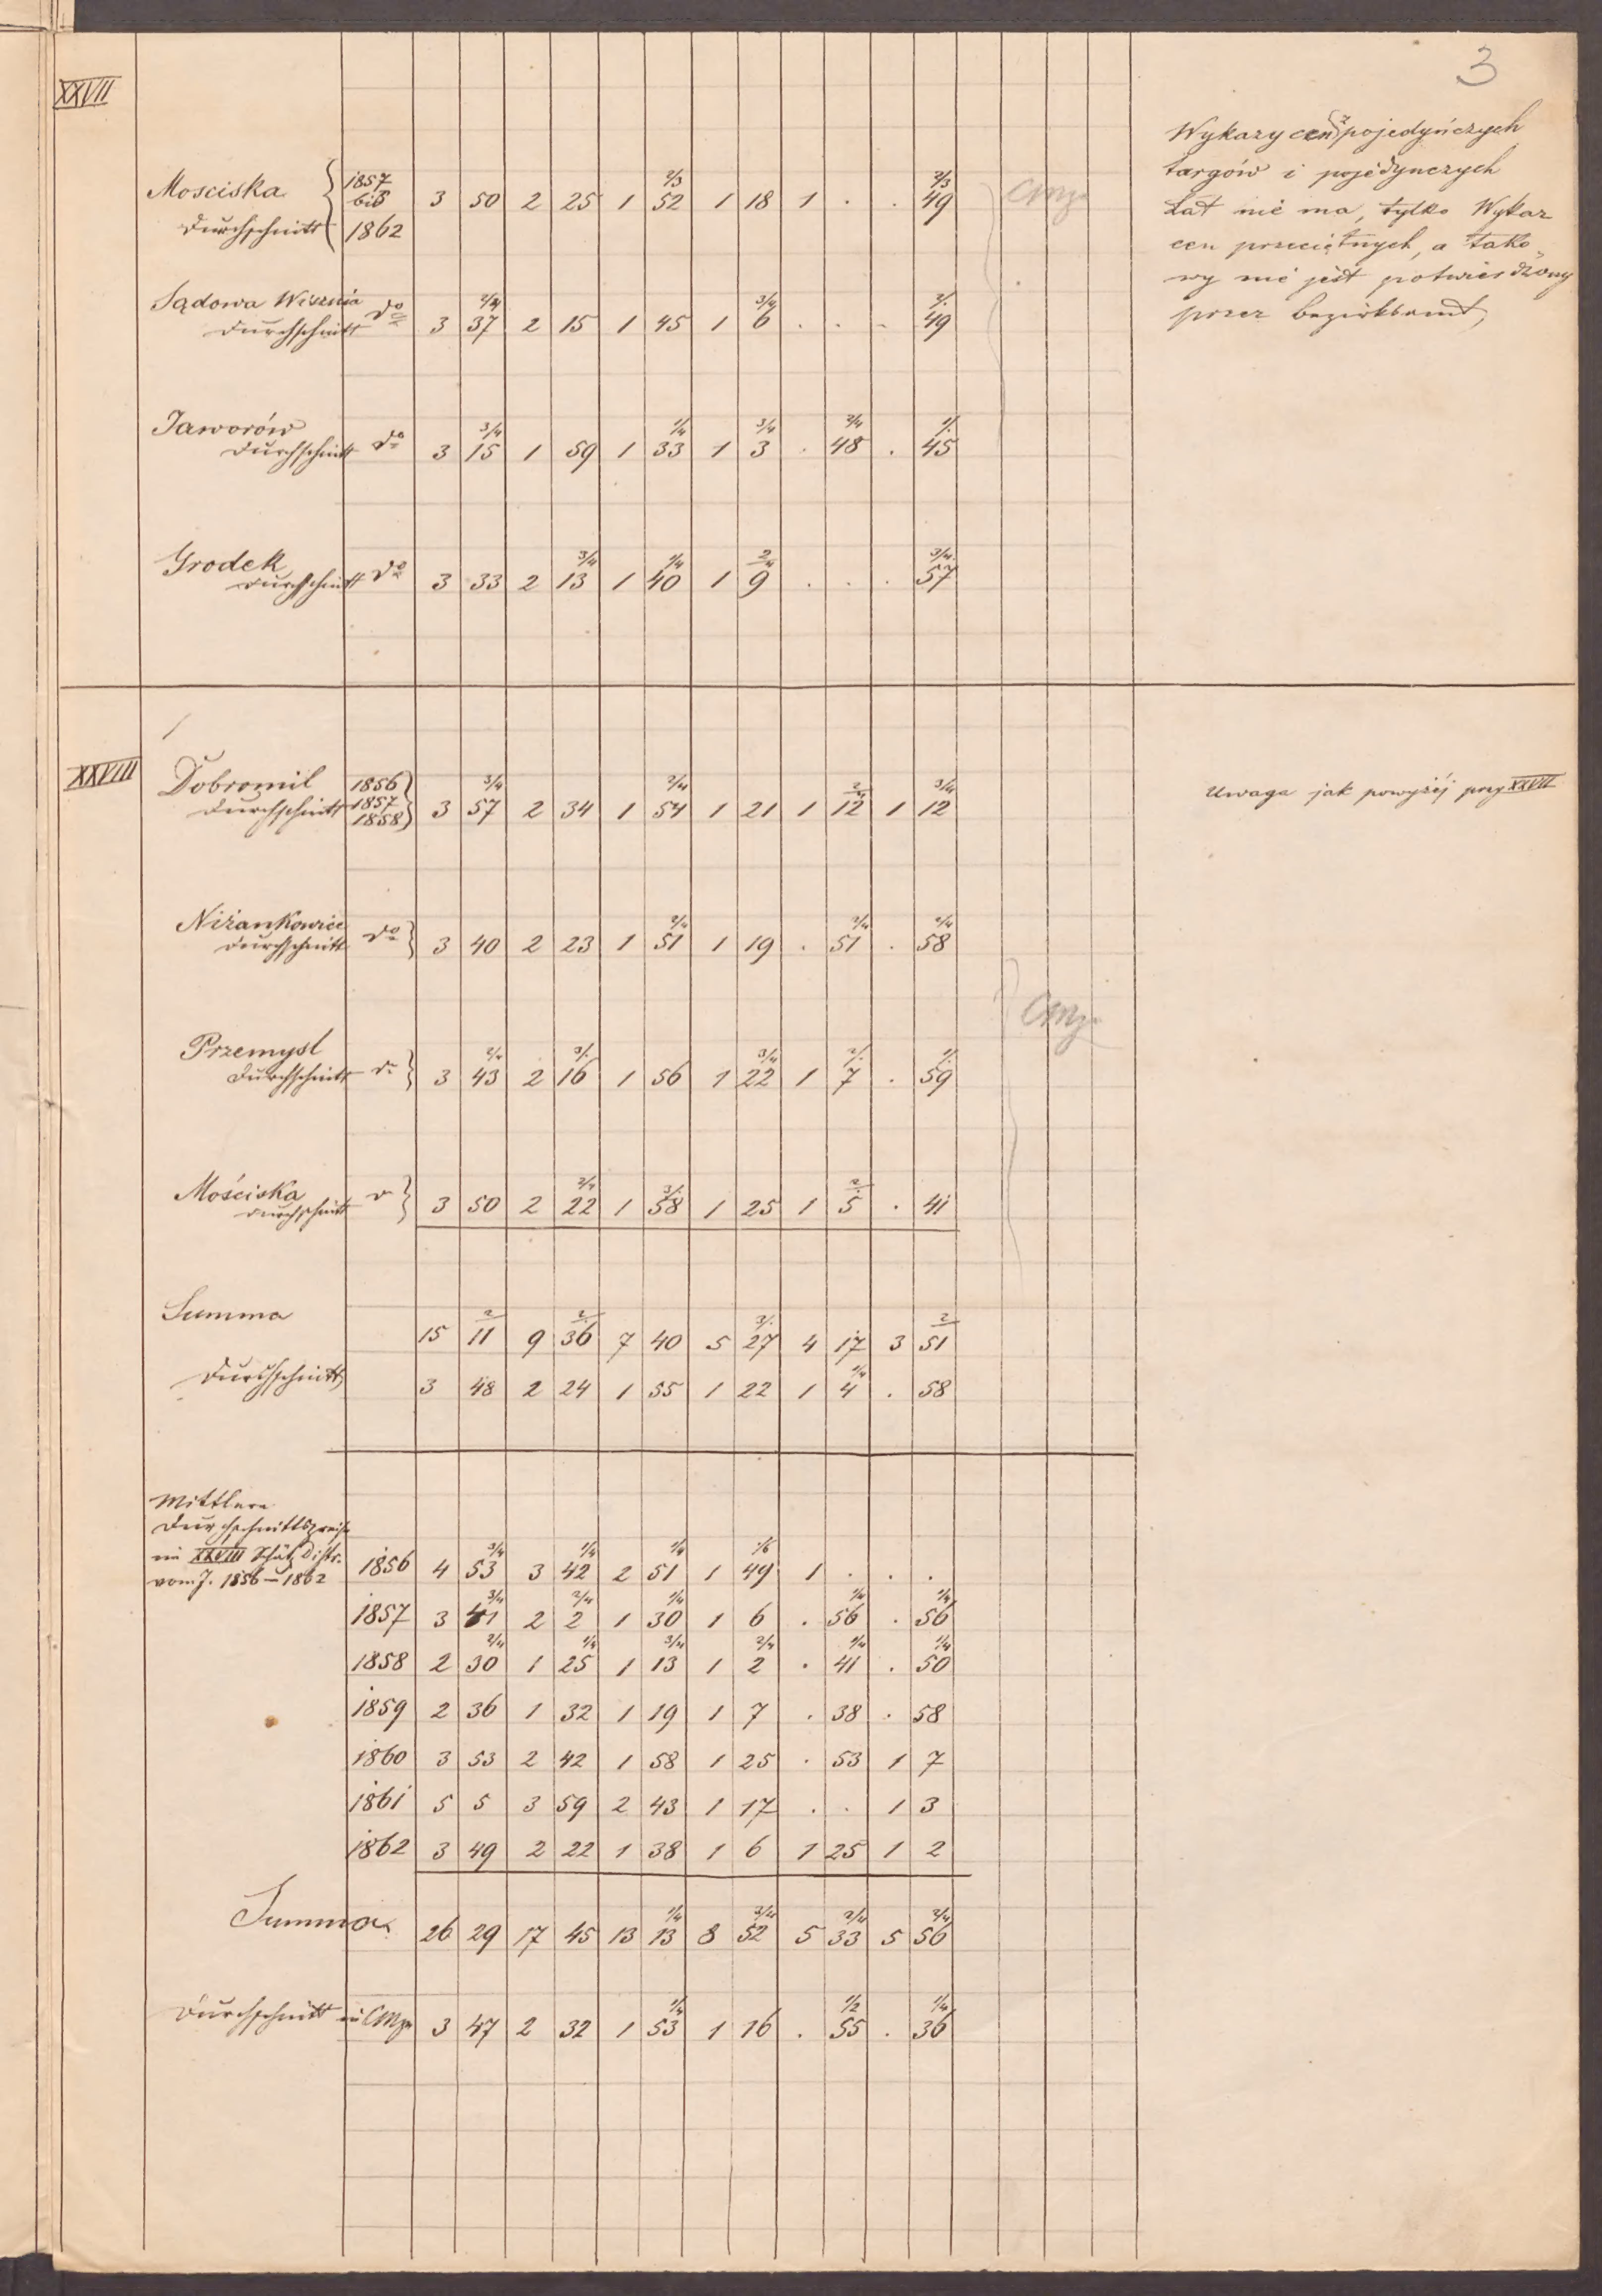 3
XXVII
Wykazy cen z pojedyńczych
targów i pojedynczych
Lat nié ma, tylko Wykaz
cen przeciętnych, a tako-
wy nié jest potwierdzony
przez bezirksamt,
Mosciska 1857
biß 3 50 2 25 1 52 2/3 1 18 1 . . 49 2/3
Durchschnitt 1862
CMz
Sądowa Wisznia do
Durchschnitt 3 37 2/4 2 15 1 45 1 6 3/4 . . . 49
Jaworów do
Durchschnitt 3 15 3/4 1 59 1 33 1/4 1 3 3/4 . 48 2/4 . 45
Grodek do
Durchschnitt 3 33 2 13 3/4 1 40 1/4 1 9 2/4 . . . 57 3/4
XXVIII
Dobromil 1856
Durchschnitt 1857 3 57 3/4 2 34 1 54 2/4 1 21 1 12 2/4 1 12 3/4
1858
Uwaga jak powyżéj przy XXVII
Niżankowice do
Durchschnitt 3 40 2 23 1 51 2/4 1 19 . 51 2/4 . 58 2/4
CMz
Przemysl do
Durchschnitt 3 43 2/4 2 16 3/. 1 56 1 22 3/4 1 7 2/. . 59
Mościska do
Durchschnitt 3 50 2 22 2/4 1 58 3/. 1 25 1 5 2/. . 41
Summa 15 11 2/ 9 36 2/ 7 40 5 27 3/. 4 17 3 51 2/
Durchschnitt 3 48 2 24 1 55 1 22 1 4 1/4 . 58
Mittlere
Durchschnittspreise
im XXVIII Schätz Distr.
vom J. 1856–1862
1856 4 53 3/4 3 42 1/4 2 51 1/4 1 49 1/6 1 . . .
1857 3 41 3/4 2 2 2/4 1 30 1/4 1 6 . 56 1/4 . 56 1/4
1858 2 30 2/4 1 25 1/4 1 13 3/4 1 2 2/4 . 41 1/4 . 50 1/4
1859 2 36 1 32 1 19 1 7 . 38 . 58
1860 3 53 2 42 1 58 1 25 . 53 1 7
1861 5 5 3 59 2 43 1 17 . . 1 3
1862 3 49 2 22 1 38 1 6 1 25 1 2
Summa 26 29 17 45 13 13 1/4 8 52 3/4 5 33 2/4 5 56 2/4
Durchschnitt in CMz 3 47 2 32 1 53 1/4 1 16 . 55 1/2 . 36 1/4